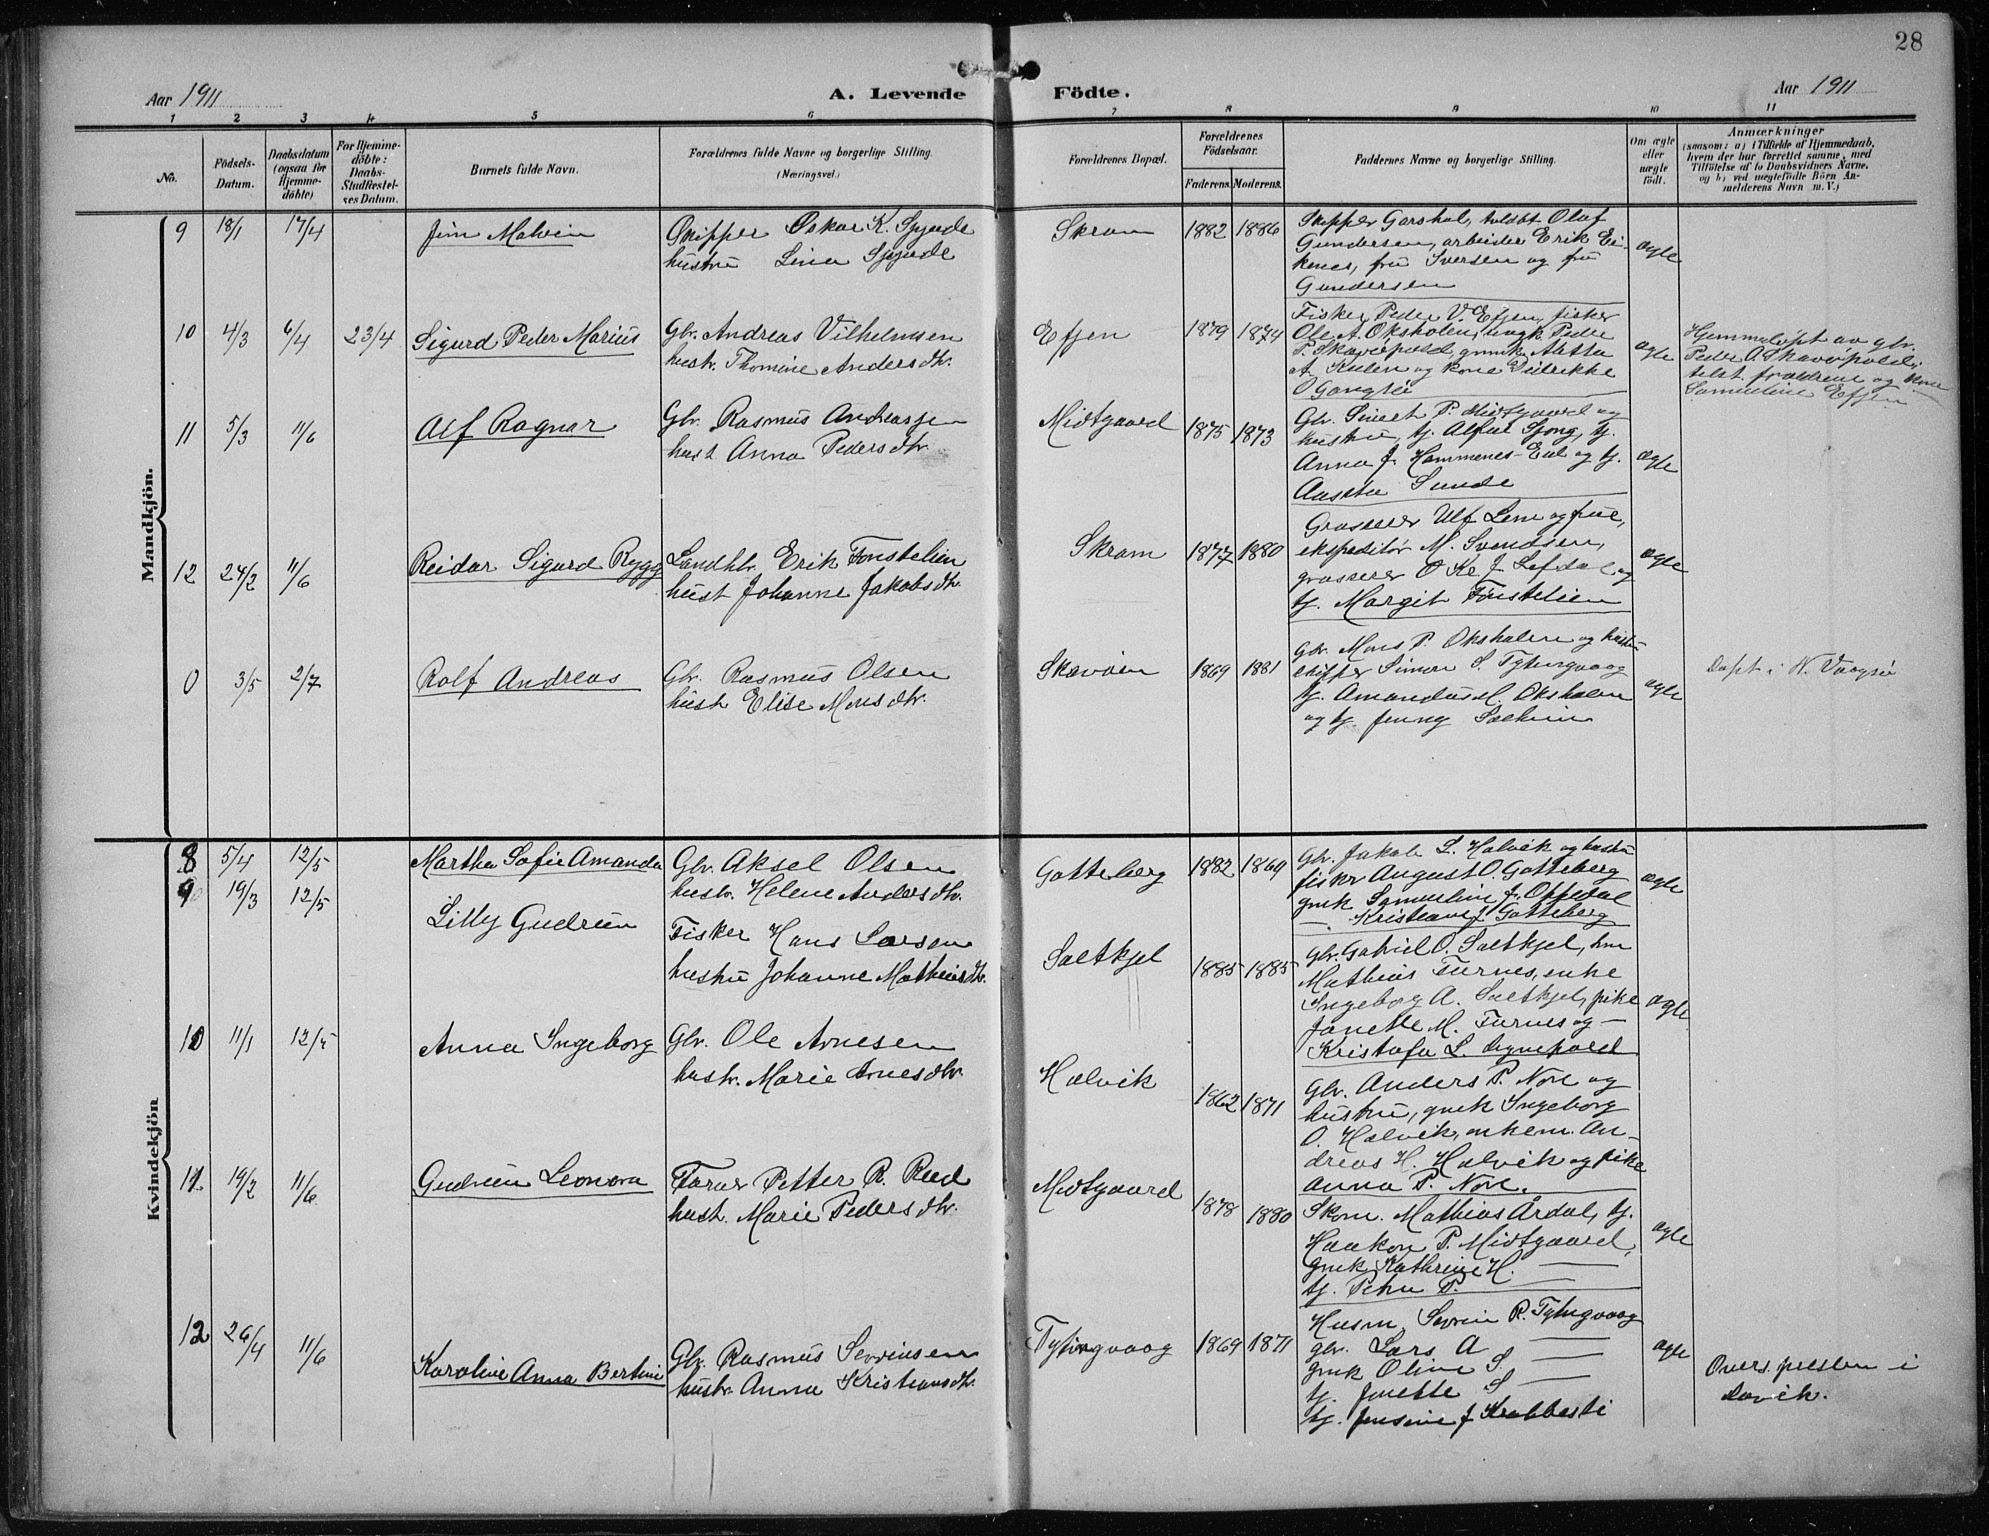 28
Aar 1911
A. Levende Födte.
Aar 1911
1 2 3 4 5 6 7 8 9 10 11
No.
Födsels-
Datum.
Daabsdatum
(ogsaa for
Hjemme-
döbte)
For Hjemme-
döbte:
Daabs-
Stadfæstel-
ses Datum.
Barnets fulde Navn.
Forældrenes fulde Navne og borgerlige Stilling.
(Næringsvei.)
Forældrenes Bopæl.
Forældrenes
Födselsaar.
Faderens. Moderens.
Faddernes Navne og borgerlige Stilling.
Om ægte
eller
uægte
födt.
Anmærkninger
(saasom: a) i Tilfælde af Hjemmedaab,
hvem der har forrettet samme, med
Tilföielse af to Daabsvidners Navne,
og b) ved uægtefödte Börn An-
melderens Navn m. V.)
Mandkjön.
9 18/1 17/4 Jim Malvin
Skipper Oskar K. Igjade
hustru Lina
Skram 1882 1886
Skipper Garshol, toldbt Olaf
Gundersen, arbeider Erik Ei-
kenes, fru Iversen og fru
Gundersen
ægte
10 4/3 6/4 23/4 Sigurd Peder Marius
Gbr. Andreas Vilhelmsen
hustr. Thomine Andersdtr.
Efjen 1879 1874
Fisker Peder V. Efjen, fisker
Ole A. Oksholen, ungk. Peder
P. Skavøpold, gmk. Aletta
A. og kone Didrikke
O
ægte
Hjemmedøpt av gbr.
Peder O. Skavøpold,
tilst. forældrene og kone
Samueline Efjen
11 5/3 11/6 Alf Ragnar
Gbr. Rasmus Andreassen
hust Anna Pedersdtr.
Midtgaard 1875 1873
Gbr. Sivert P. Midtgaard og
hustru, tj. Gjong, tj.
Anna J. Hammenes- og tj.
Aasta Sunde
ægte
12 24/2 11/6 Reidar Sigurd Rygg
Landh. Erik Tonstelien
hust Johanne Jakobsdtr.
Skram 1877 1880
Grosserer Ulf Lem og frue,
ekspeditør M. Svendsen,
grosserer J. Lefdal og
tj. Margit Tonstelien
ægte
0 3/5 2/7 Rolf Andreas
Gbr. Rasmus Olsen
hust Elise Monsdtr.
Skavøen 1869 1881
Gbr. Mons P. Oksholen og hustru
skipper Simon S. Tytingvaag
tj. Amandus M. Oksholen
og tj. Jenny
ægte
Døpt i N. Vaagsø
Kvindekjön
8 5/4 12/5 Martha Sofie Amanda
Gbr. Aksel Olsen
hustr. Helene Andersdtr.
Gotteberg 1882 1869
Gbr. Jakob L. Halvik og hustru
fisker August O. Gotteberg
gmk Samueline J. Oppedal
— Kristiane J. Gotteberg
ægte
9 19/3 12/5 Lilly Gudrun
Fisker Hans Larsen
hustru Johanne Mathiasdtr.
Saltkjel 1885 1885
Gbr. Gabriel O. Saltkjel,
Mathias Furnes, enke
Ingeborg A. Saltkjel, pike
Janette M. Furnes og —
Kristofa L.
ægte
10 11/1 12/5 Anna Ingeborg
Gbr. Ole Arnesen
hustr. Marie Arnesdtr.
Halvik 1862 1871
Gbr. Anders P. Nore og
hustru, gmk Ingeborg
O. Halvik, enkem. An-
dreas H. Halvik og pike
Anna P. Nore.
11 19/2 11/6 Gudrun Leonora
Farver Petter R. Rud
hust. Marie Pedersdtr.
Midtgaard 1878 1880
Skom. Mathias Årdal, tj.
Haakon P. Midtgaard,
gmk Kathrine H. —
tj. Petra P. —
ægte
12 26/4 11/6 Karoline Anna Bertine
Gbr. Rasmus Severinsen
hustr. Anna Kristiansdtr.
Tytingvaag 1869 1871
Husm Severin R. Tytingvaag
gbr. Lars A —
gmk Oline S. —
tj. Jonette S —
tj. Jensine J Krabbesti
ægte
Overs. presten i
Davik.